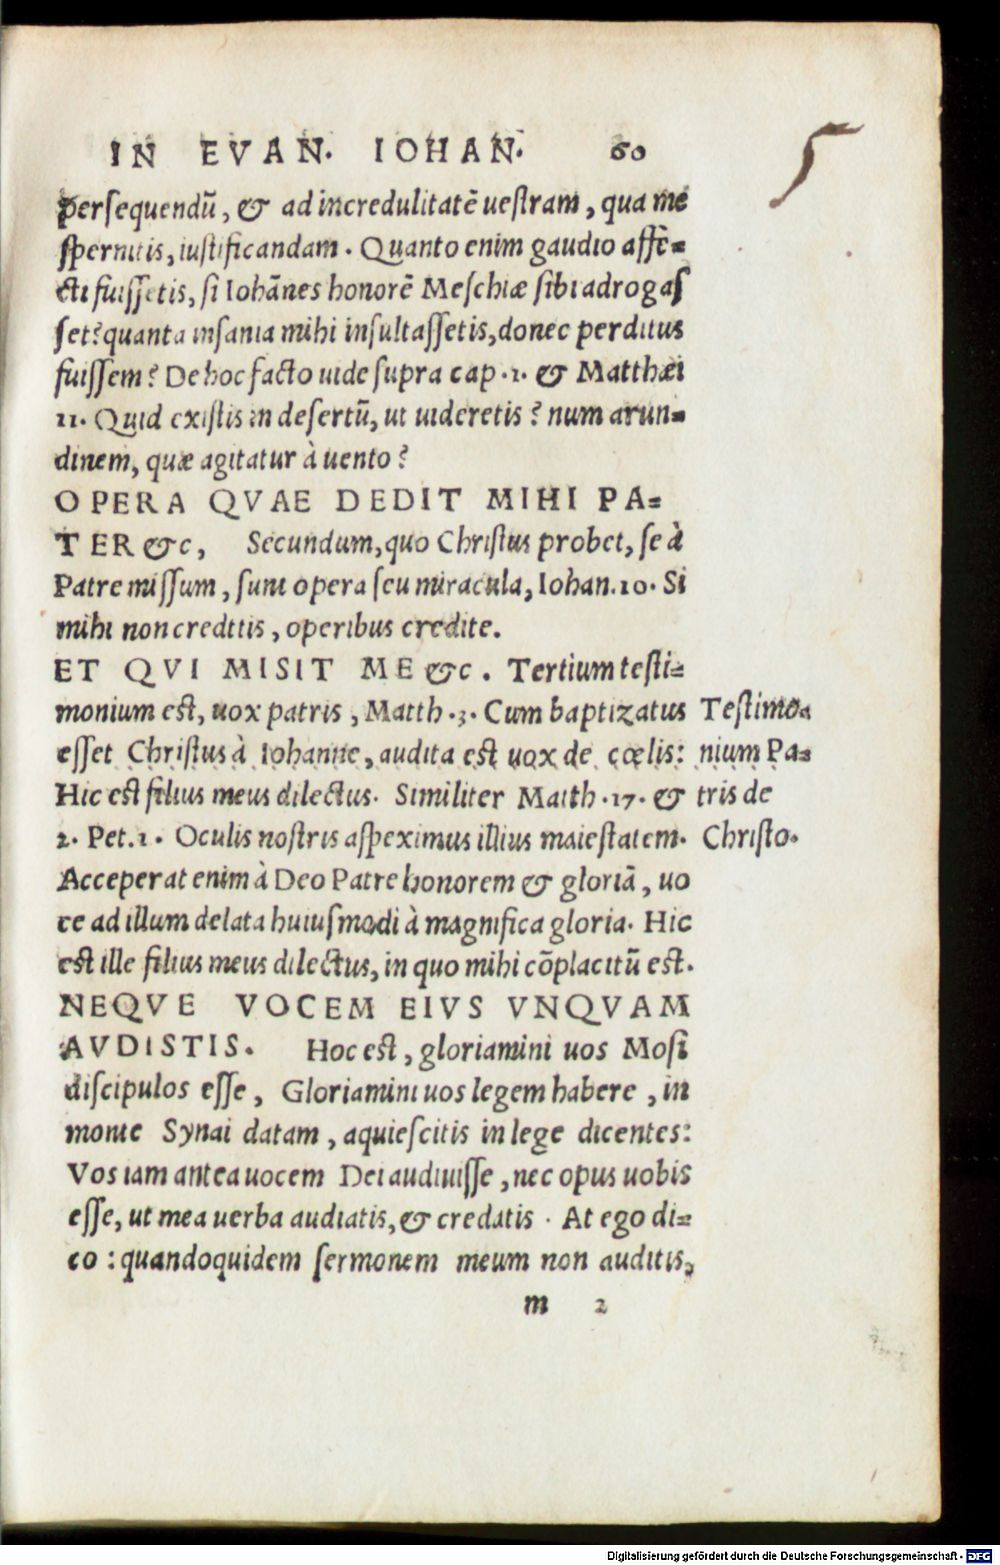 IN EVAN. IOHAN. 60
5
persequendū, & ad incredulitatē uestram, qua me
spernitis, iustificandam. Quanto enim gaudio affe=
cti fuissetis, si Iohānes honorē Meschiæ sibi adrogas
set? quanta insania mihi insultassetis, donec perditus
fuissem? De hoc facto uide supra cap. 1. & Matthæi
11. Quid existis in desertū, ut uideretis? num arun=
dinem, quæ agitatur à uento?
OPERA QVAE DEDIT MIHI PA=
TER &c, Secundum, quo Christus probet, se à
Patre missum, sunt opera seu miracula, Iohan. 10. Si
mihi non creditis, operibus credite.
ET QVI MISIT ME &c. Tertium testi=
monium est, uox patris, Matth. 3. Cum baptizatus
esset Christus à Iohanne, audita est uox de cœlis:
Hic est filius meus dilectus. Similiter Matth. 17. &
2. Pet. 1. Oculis nostris aspeximus illius maiestatem.
Acceperat enim à Deo Patre honorem & gloriā, uo
ce ad illum delata huiusmodi à magnifica gloria. Hic
est ille filius meus dilectus, in quo mihi cōplacitū est.
NEQVE VOCEM EIVS VNQVAM
AVDISTIS. Hoc est, gloriamini uos Mosi
discipulos esse, Gloriamini uos legem habere, in
monte Synai datam, aquiescitis in lege dicentes:
Vos iam antea uocem Dei audiuisse, nec opus uobis
esse, ut mea uerba audiatis, & credatis. At ego di=
co: quandoquidem sermonem meum non auditis,
m 2
Testimo=
nium Pa=
tris de
Christo.
Digitalisierung gefördert durch die Deutsche Forschungsgemeinschaft - DFG